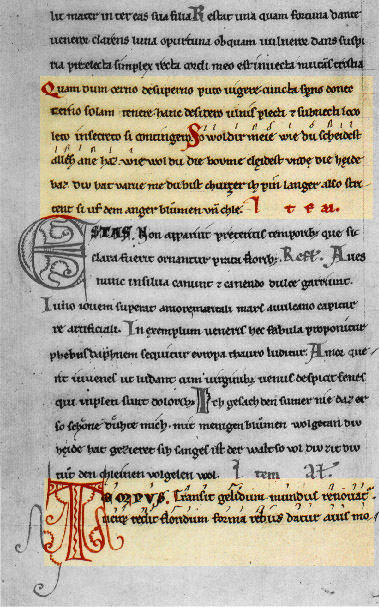 lit mater inter eas sua filia Refl. Est una quam fortuna dante
veneror clarens luna oportuna ob quam vulnere dans suspi
ria preelecta simplex recta cordi meo est invecta mutans tristia
Quam dum cerno de superno puto vigere cuncta sp̄no donec
cerno solam tenere hanc desidero ulnis plecti & subvecti loco
leto in secreto si contingero So wol dir meie wie du scheidest
allez ane haz wie wol du die boume cleidest unde die heide
baz diu hat varwe me du bist churzer ich pin langer also stri
tent si uf dem anger blůmen uñ chle. I t e al.
ESTAS. Non apparuit preteritis temporibꝰ que sic
clara fuerit ornantur prata floribꝰ. Refl. Aves
nunc in silva canunt & canendo dulce garriunt.
Iuno iovem superat amore maritali mars a vulcano capitur
re artificiali. In exemplum veneris hec fabula proponitur
phebus daphnem sequitur europa thauro luditur. Amor que
rit iuvenes ut ludant cum virginibꝰ venus despicit senes
qui inpleti sunt doloribꝰ Ich gesach den sumer nie daz er
so schone duhte mich mit menigen blůmen wolgetan div
heide hat gezieret sich sanges ist der walt so vol div zit div
tůt den chleinen volgelen wol. I tem Al.
TEMPVS. Transit gelidum mundus renovat᷑
verque redit floridum forma rebus datur avis mo